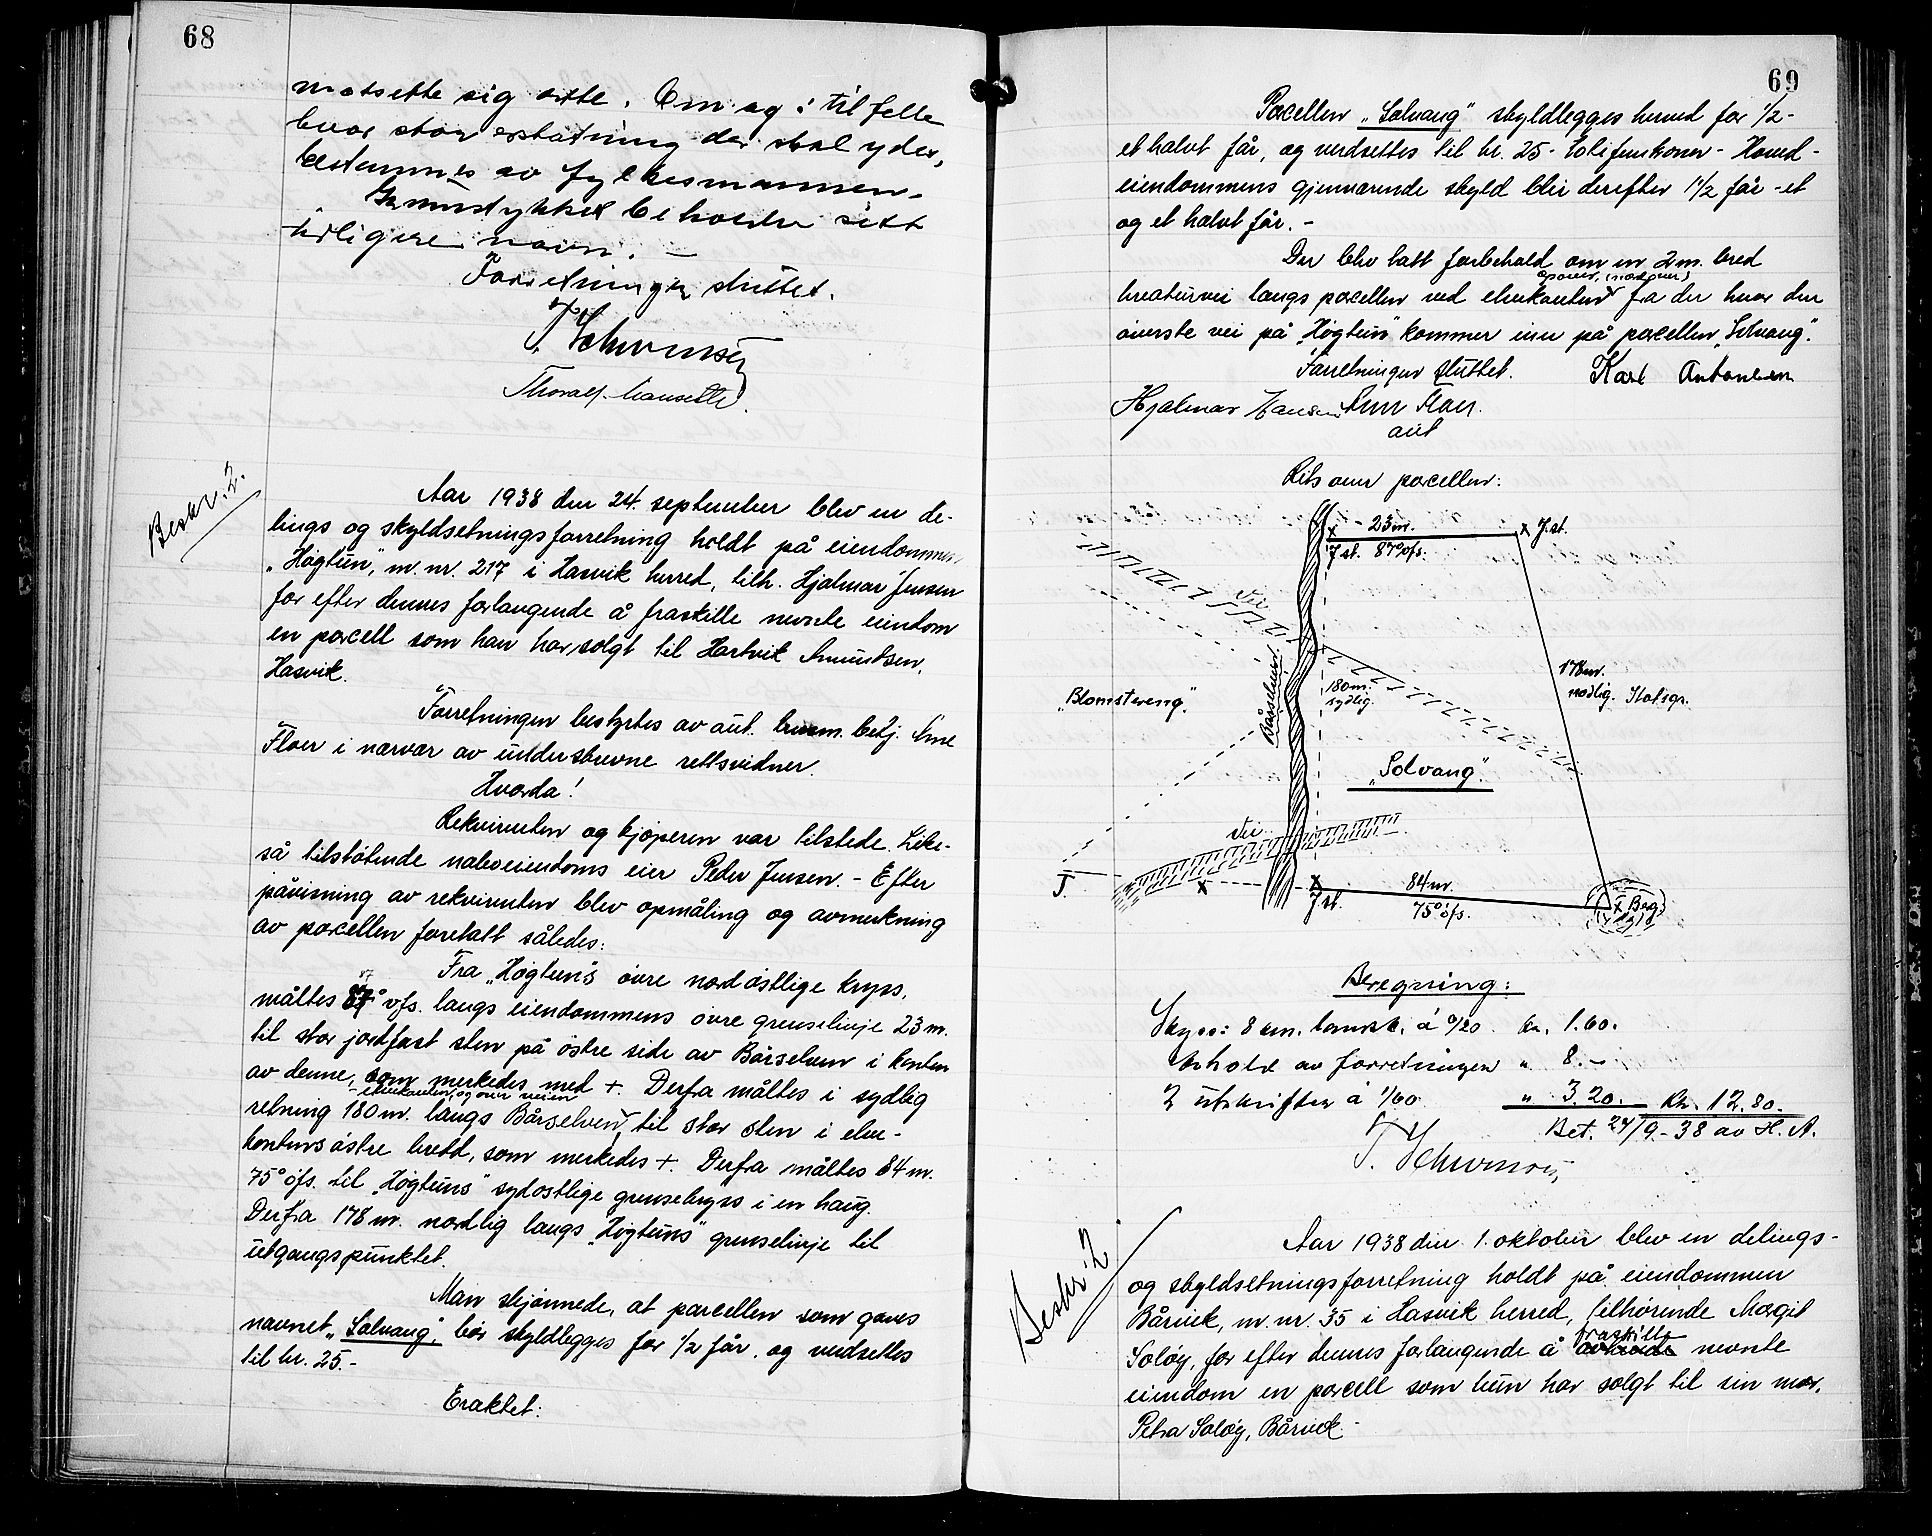 68
motsette sig dette. Om og i tilfelle
hvor stor erstatning der skal ydes,
bestemmes av fylkesmannen.
Grunnstykket beholder sitt
tidligere navn. —
Forretningen sluttet.
Beskr. 2.
Aar 1938 den 24. september blev en de-
lings og skyldsetningsforretning holdt på eiendommen
"Høgtun", m. nr. 217 i Hasvik herred, tilh. Hjalmar Jensen
for efter dennes forlangende å fraskille nevnte eiendom
en parcell som han har solgt til Hartvik Amundsen,
Hasvik.
Forretningen bestyrtes av aut. lensm. betj. Arne
Floer i nærvær av underskrevne rettsvidner.
Hvorda!
Rekvirenten og kjøperen var tilstede. Like-
så tilstøtende naboeiendoms eier Peder Jensen. - Efter
påvisning av rekvirenten blev opmåling og avmerkning
av parcellen foretatt således:
Fra "Høgtun"s øvre nordøstlige kryss,
måltes 87° vfs. langs eiendommens øvre grenselinje 23 m.
til stor jordfast sten på østre side av Bårselven i kanten
av denne, som merkedes med +. Derfra måltes i sydlig
- elvekanten, og over veien
retning 180 m. langs Bårselven, til stor sten i elve-
kantens østre bredd, som merkedes +. Derfra måltes 84 m.
75° øfs. til "Høgtuns" sydøstlige grensekryss i en haug.
Derfra 178 m. nordlig langs "Høgtuns" grenselinje til
utgangspunktet.
Man skjønnede, at parcellen som gaves
navnet "Solvang", bør skyldlegges for 1/2 får, og verdsettes
til kr. 25.-
Eraktet:
69
Parcellen "Solvang" skyldlegges herved for 1/2 -
et halvt får, og verdsettes til kr. 25 - totifemkroner - Hoved-
eiendommens gjenværende skyld blir derefter 1 1/2 får - et
og et halvt får. -
Der blev tatt forbehold om en 2 m. bred
opover, (nordover)
kreaturvei langs parcellen ved elvekanten fra der hvor den
øverste vei på "Høgtun" kommer inn på parcellen "Solvang".
Forretningen sluttet. Karl Antonsen
Hjalmar Hansen Arne Floer.
aut
Rits over parcellen:
x - 23 m. x J.st.
J st. 87° øfs.
Vei
Bårselven
180 m.
sydlig.
178 m.
nordlig. Statsgr.
"Blomstereng".
"Solvang".
Vei
J. x x 84 m.
J st. 75° øfs. x Berg
Beregning:
Skyss: 8 km. landsk. á 0/20 kr. 1.60.
Avholt av forretningen " 8. -
2 utskrifter á 1/60 " 3.20. Kr. 12.80.
Bet. 24/9 - 38 av H. A.
Beskr. 2
Aar 1938 den 1. oktober blev en delings-
og skyldsetningsforretning holdt på eiendommen
Bårvik, m. nr. 35 i Hasvik herred, tilhørende Magit
fraskille
Soløy, for efter dennes forlangende å nevnte
eiendom en parcell som hun har solgt til sin mor,
Petra Soløy, Bårvik. -